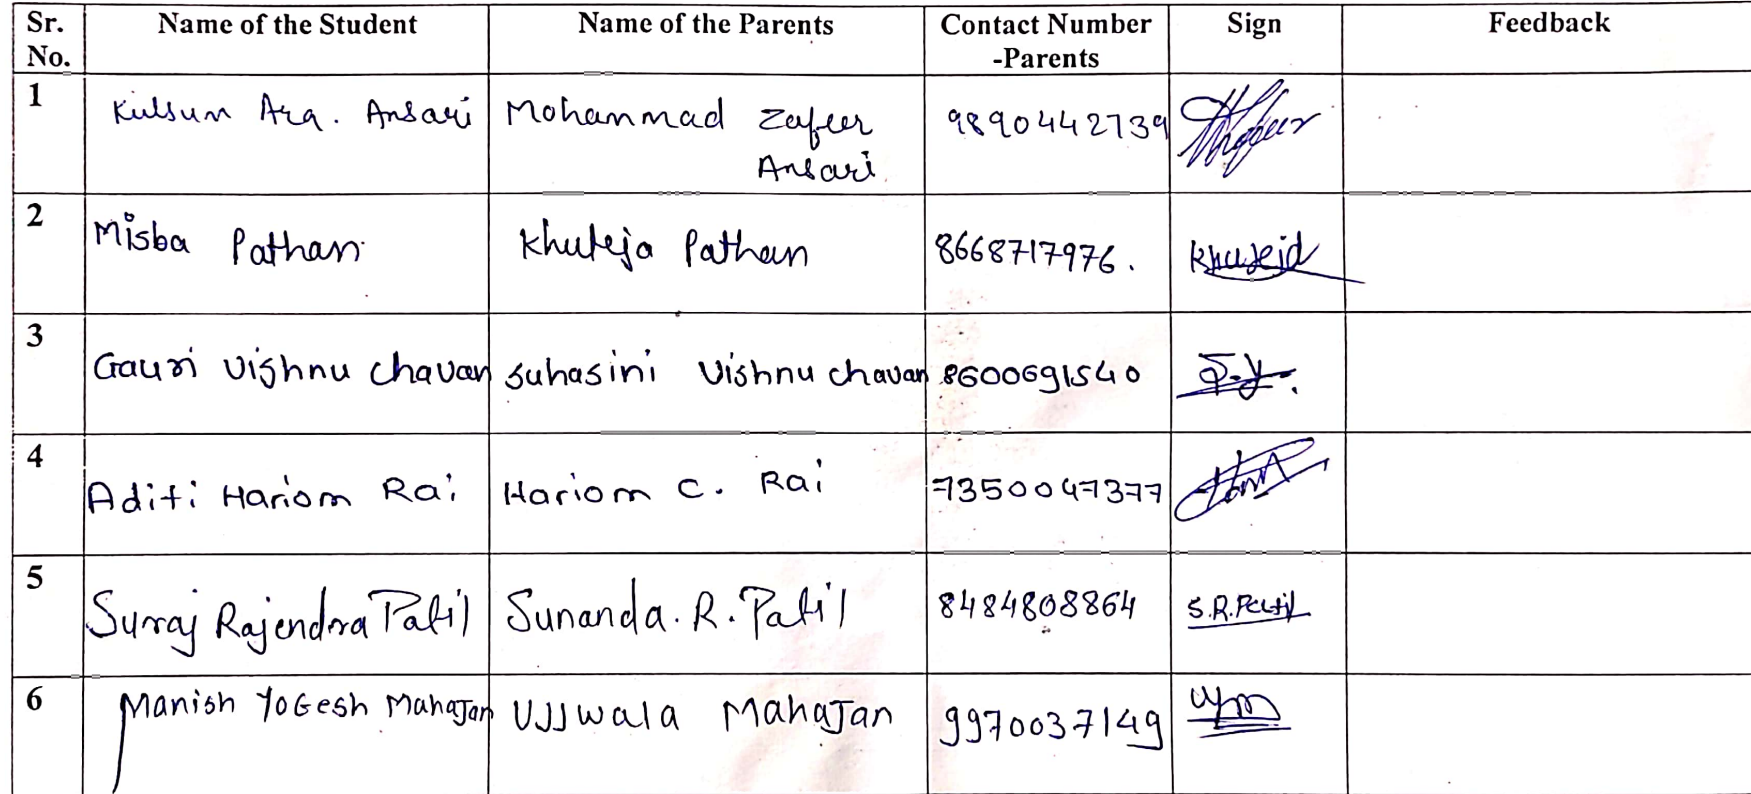 Sr. No. Name of the Student Name of the Parents Contact Number -Parents Sign Feedback
1 Kulsum Ara. Ansari Mohammad Zafeer Ansari 9890442739
2 Misba Pathan Khuteja Pathan 8668717976. Khuteja
3 Gauri Vishnu Chavan Suhasini Vishnu Chavan 8600691540
4 Aditi Hariom Rai Hariom C. Rai 7350047377
5 Suraj Rajendra Patil Sunanda. R. Patil 8484808864 S.R.Patil
6 Manish Yogesh Mahajan Ujjwala Mahajan 9970037149